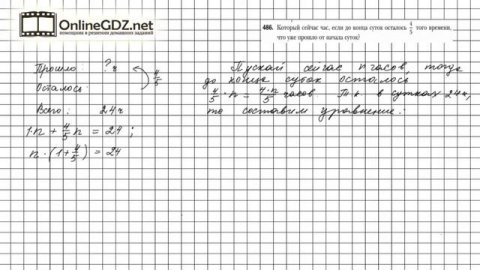 OnlineGDZ.net
помощник в решении домашних заданий
486. Который сейчас час, если до конца суток осталось 4/5 того времени,
что уже прошло от начала суток?
Прошло ? ч
Осталось 4/5
Всего: 24 ч
1·n + 4/5 n = 24 ;
n · (1 + 4/5) = 24
Пускай сейчас n часов, тогда
до конца суток осталось
4/5 · n = 4·n/5 часов Т.к. в сутках 24 ч,
то составим уравнение: